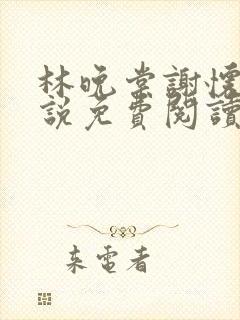 林晚棠謝懷
說免費閱讀
来電者